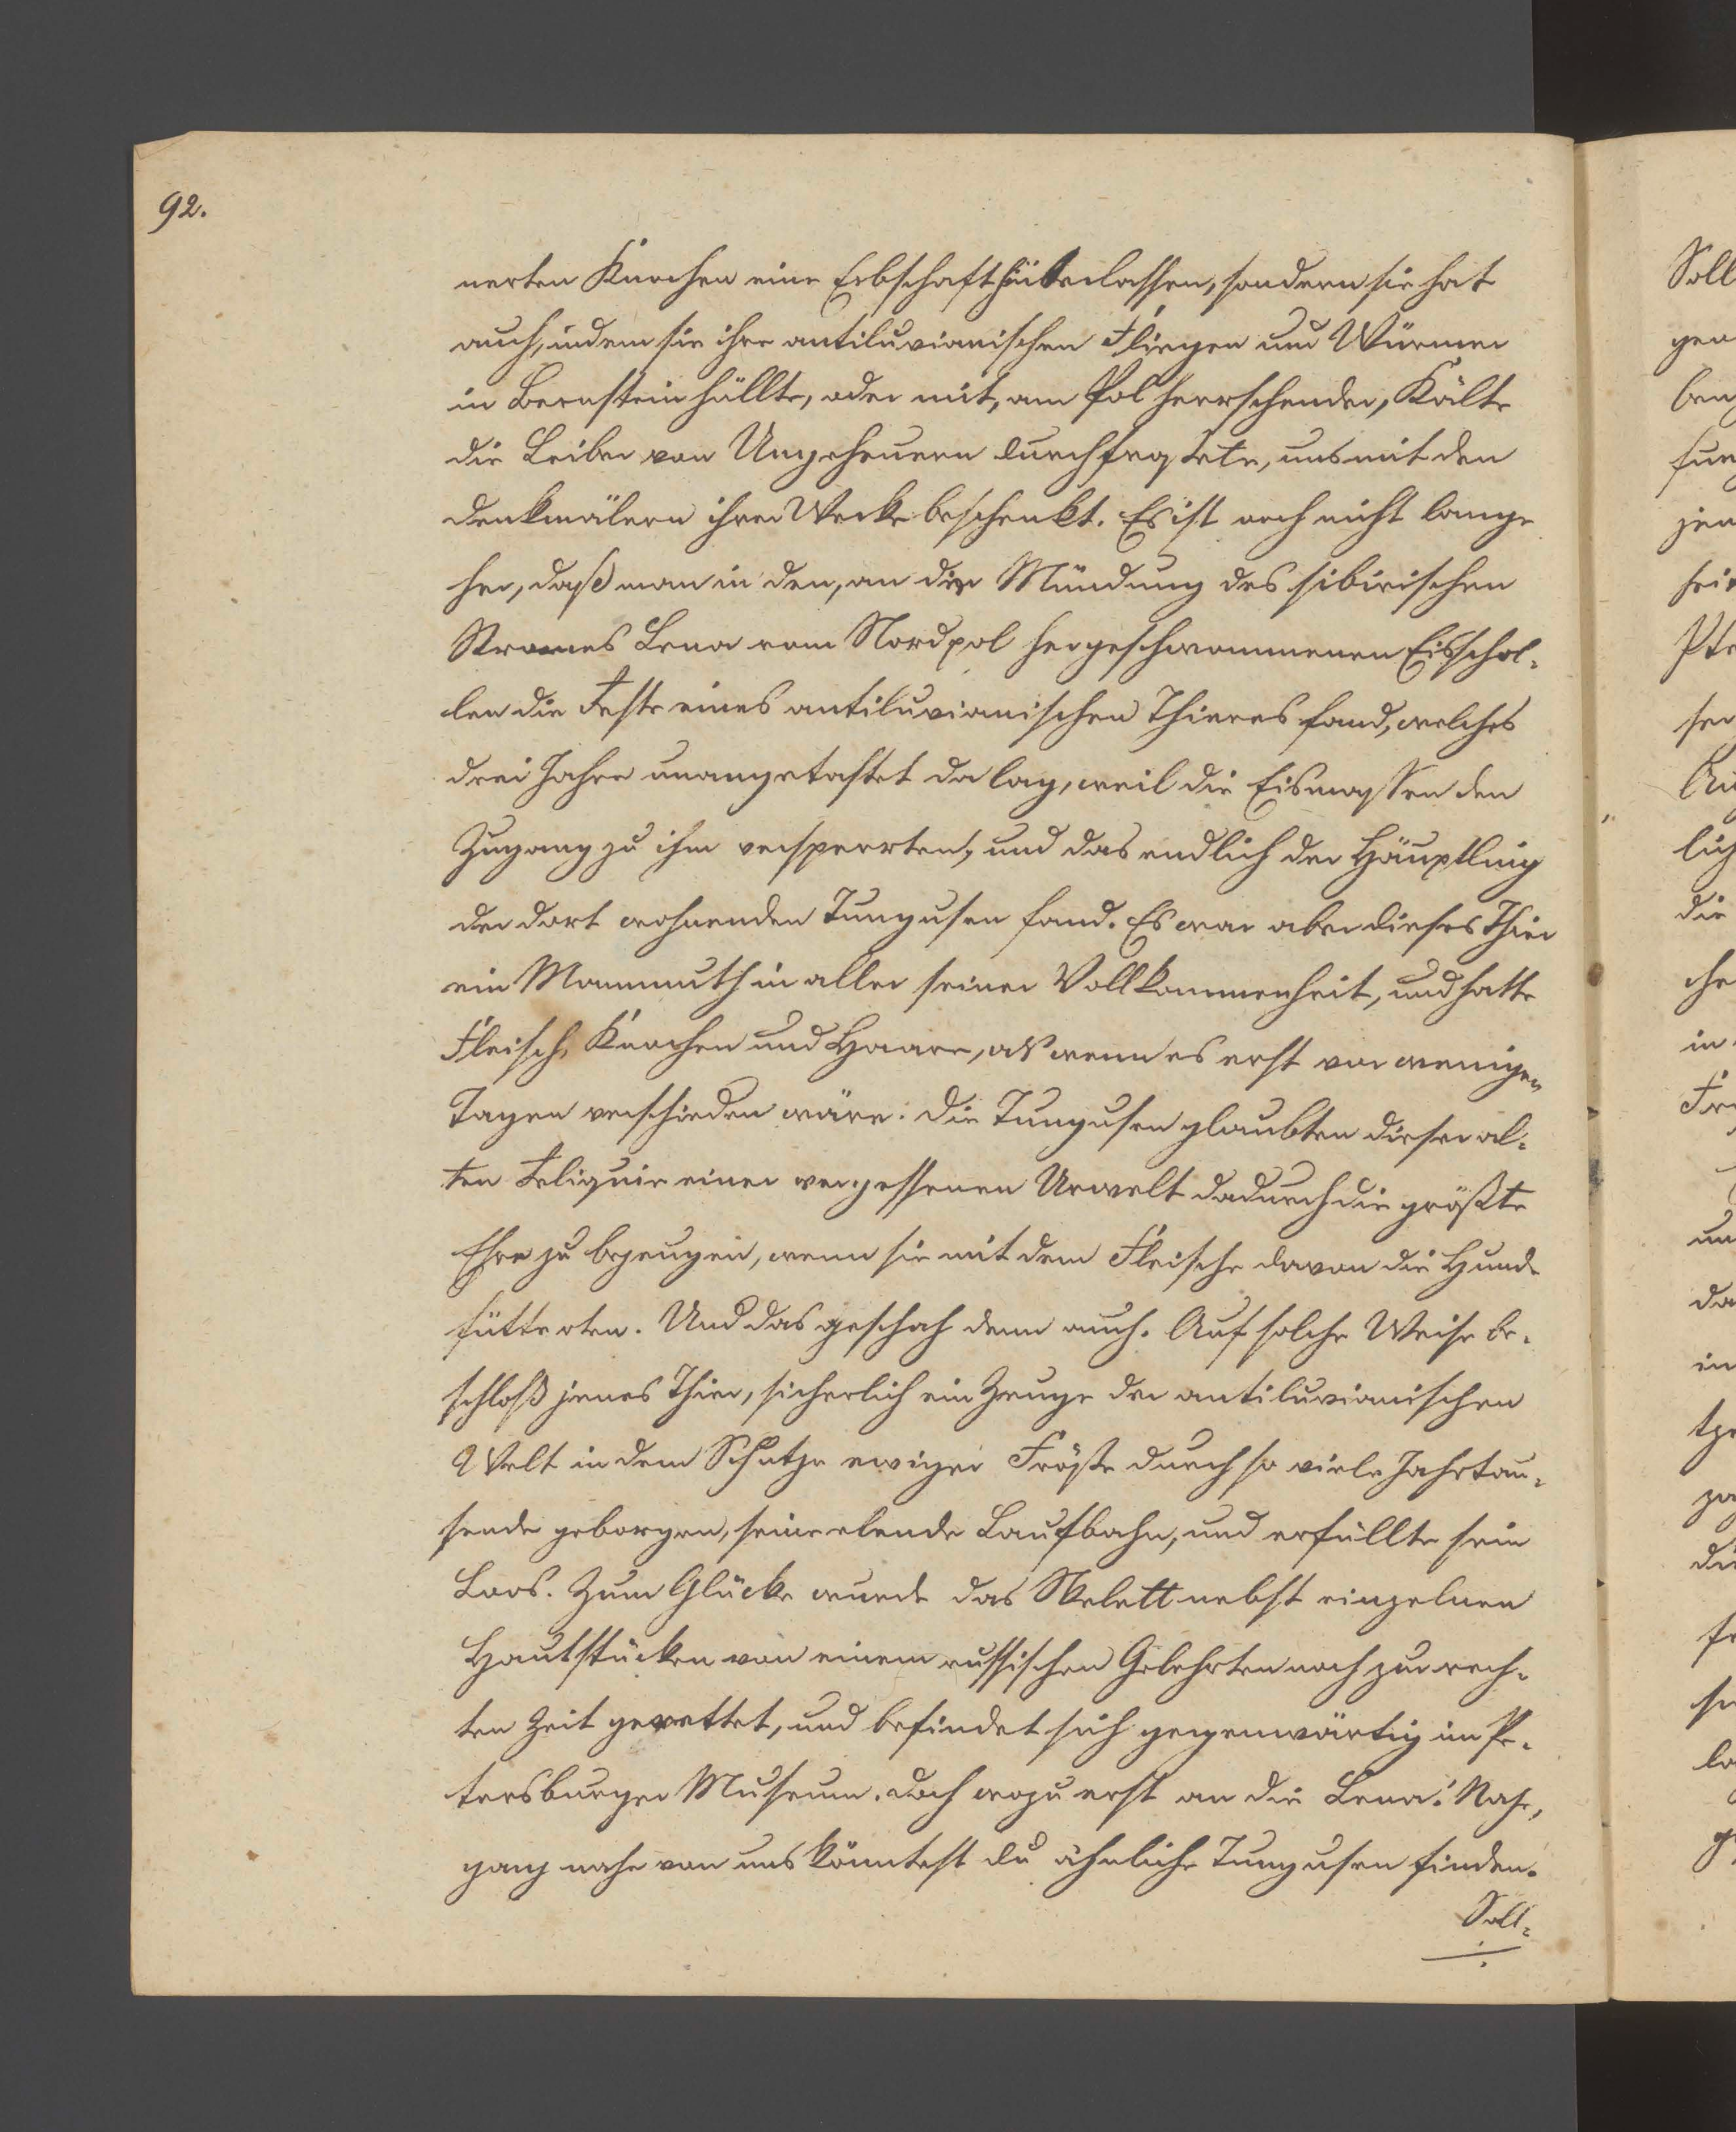 92.
nerten Knochen eine Erbschaft hinterlassen, sondern sie hat
auch, indem sie ihre antiluvianischen Fliegen und Würmer
in Bernstein hüllte, oder mit, am Pol herrschender, Kälte
die Leiber von Ungeheuern durchfrostete, uns mit den
Denkmälern ihrer Werke beschenkt. Es ist noch nicht lange
her, daß man in den, an die Mündung des sibirischen
Stromes Lena vom Nordpol hergeschwommenen Eisschol-
len die Reste eines antiluvianischen Thieres fand, welches
drei Jahre unangetastet da lag, weil die Eismassen den
Zugang zu ihm versperrten, und das endlich der Häuptling
der dort wohnenden Tungusen fand. Es war aber dieses Thier
ein Mammuth in aller seiner Vollkommenheit, und hatte
Fleisch, Knochen und Haare, als wenn es erst vor wenigen
Tagen verschieden wäre. Die Tungusen glaubten dieser al-
ten Reliquie einer vergessenen Urwelt dadurch die größte
Ehre zu bezeugen, wenn sie mit dem Fleische davon die Hunde
fütterten. Und das geschah denn auch. Auf solche Weise be-
schloß jenes Thier, sicherlich ein Zeuge der antiluvianischen
Welt in dem Schutze ewiger Fröste durch so viele Jahrtau-
sende geborgen, seine elende Laufbahn, und erfüllte sein
Loos. Zum Glücke wurde das Skelett nebst einzelnen
Hautstücken von einem russischen Gelehrten noch zur rech-
ten Zeit gerettet, und befindet sich gegenwärtig im Pe-
tersburger Museum. Doch wozu erst an die Lena! Nahe,
ganz nahe von uns könntest du ähnliche Tungusen finden.
Soll-